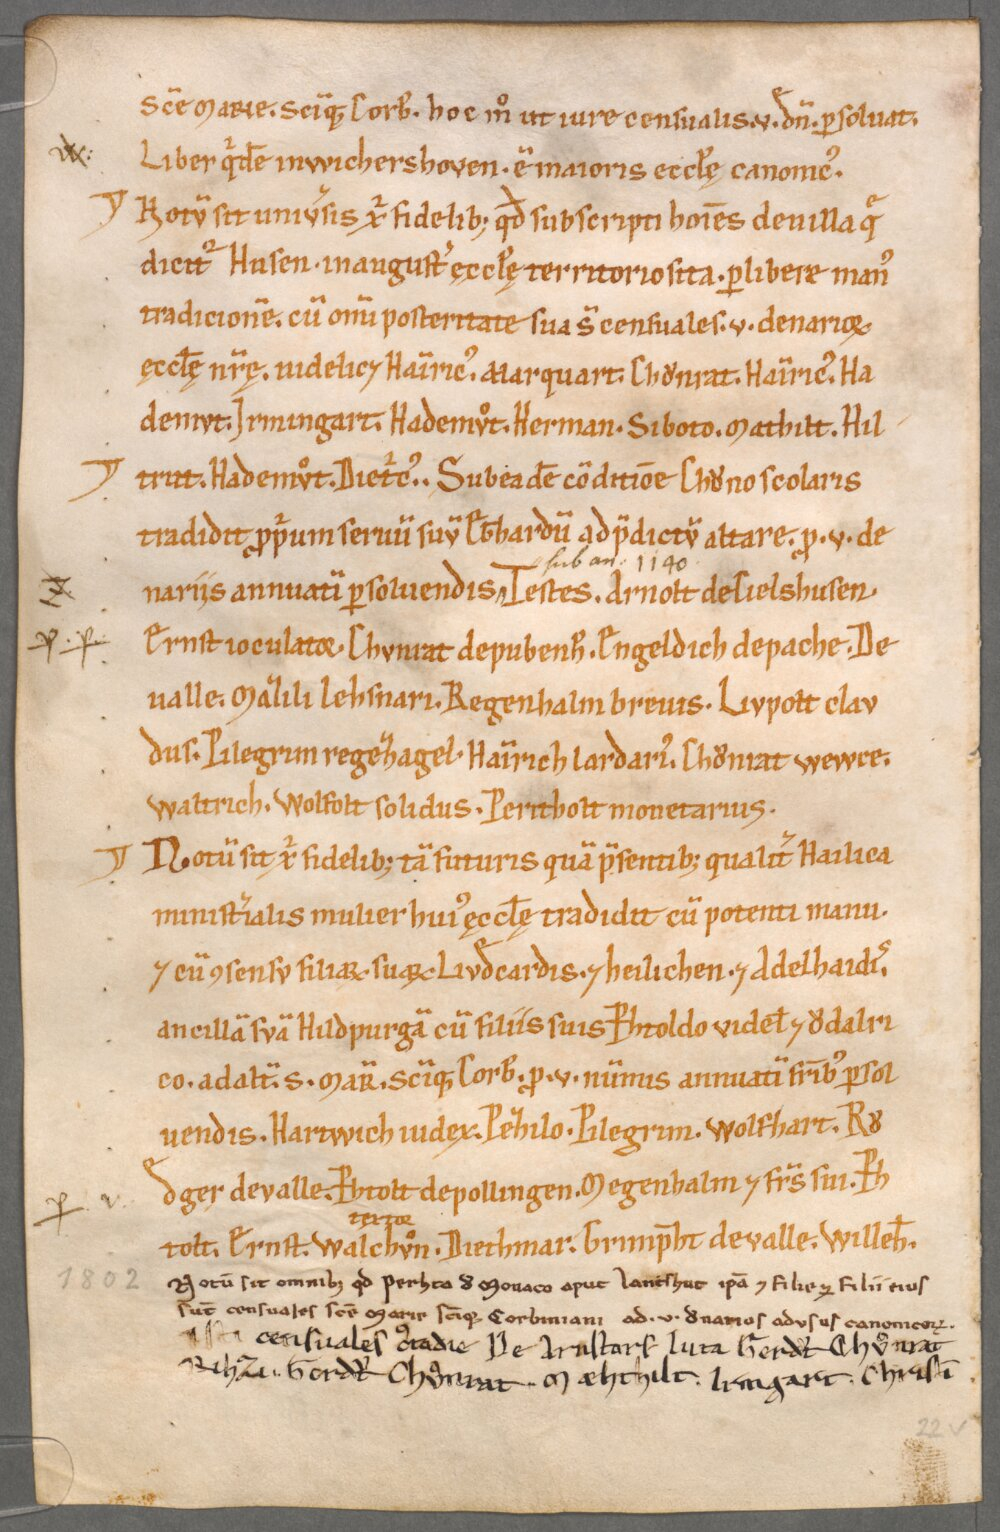 scē marie. sciq; Corb̄. hoc m̊ ut iure censualis .v. dn̄. p̱soluat.
Liber q'dē in wichershoven. ē maioris eccłę canonic⁹.
Notū sit univ̄sis xp̄i fidelib; qđ subscripti hoīēs de villa q̄
dicit᷑ Husen. in august᷑ ęccłę territorio sita. p̱ libere man⁹
tradicionē. cū om̄i posteritate sua s̄ censuales .v. denarioꝝ
ęccłę nr̄ę. uidelicꝫ Haīric⁹. Marquart. Chůnrat. Haīric⁹. Ha
demvt. Irmingart. Hademůt. Herman. Siboto. Mathilt. Hil
trut. Hademůt. Diet'c⁹. Sub eadē cōditiōe Chůno scolaris
tradidit ꝓp'um seruū suū Eb̄hardū ad p̄dictū altare. ꝓ .v. de
sub an. 1140
nariis annuatī p̱soluendis. Testes. Arnolt de Cielshusen.
Ernst ioculatoꝛ. Chvnrat de pubenh̄. Engeldich de pache. De
ualle. Mālili lehsnari. Regenhalm breuis. Livpolt clav
dus. Pilegrim regēhagel. Haīrich lardari⁹. Chůnrat wewce.
Waltrich. Wolfolt solidus. Perhtholt monetarius.
Notū sit xp̄i fidelib; tā futuris quā p̄sentib; qualit᷑ Hailica
minist'ialis mulier hui⁹ ęccłę tradidit cū potenti manu.
⁊ cū ꝯsensv filiaꝝ suaꝝ Livdcardis. ⁊ heilichen. ⁊ Adelhaidis.
ancillā svā Hildpurgā cū filiis suis P̱htoldo videł ⁊ ůdalri
co. ad alt̄. s. Mar̄. sciq; Corb̄. ꝓ .v. nūmis annuatī fr̄ib⁹ p̱sol
uendis. Hartwich iudex. Pēhilo. Pilegrim. Wolfhart. Rů
dger de valle. P̱htolt de pollingen. Megenhalm ⁊ fr̄s sui. P̱h
tolt. Ernst. Walchůn. Diethmar. Grimp̱ht de valle. Willeh̄.
1802 Notū sit omnib; qđ perhta d̄ Monaco aput lantshut ipā ⁊ filie ꝫ filii eius
sūt censuales scē Marie scīq; Corbiniani ad .v. d̄narios ad vsus canonicoꝝ.
censuales De Arnstorf Iuta Gerdr̄t Chůnrat
Gerdr̄t Chůnrat. Mæhthilt. Irmgart. Christī
22v